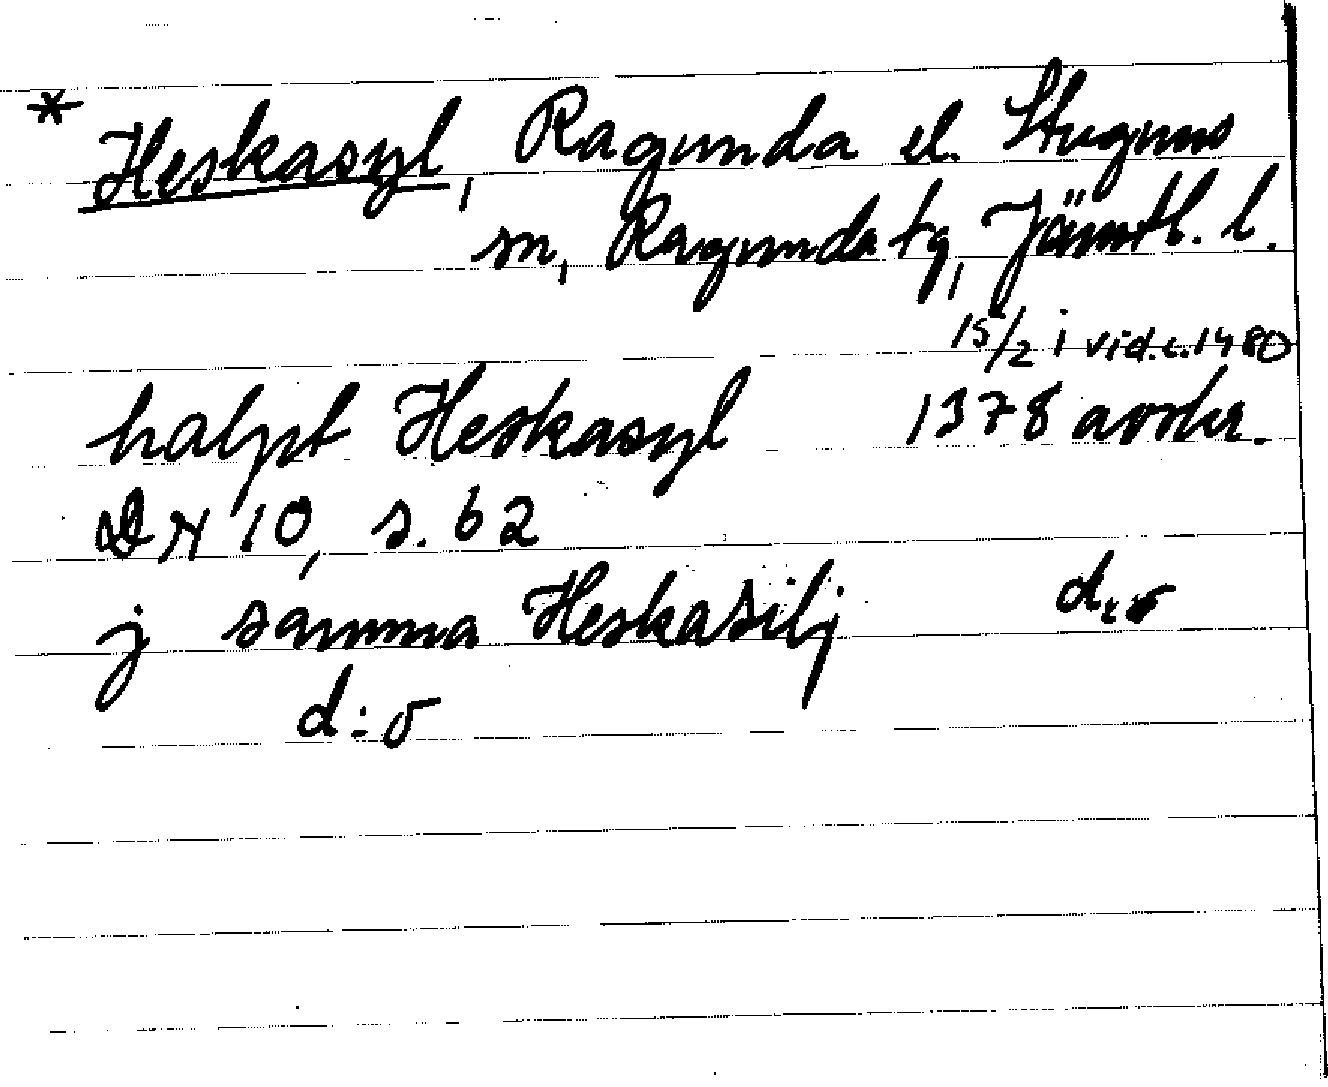 * Heskasyl, Ragunda el. Stuguns
sn, Ragunda tg, Jämtl. l.
15/2 i vid.c.1480
halpt Heskasyl 1378 avskr.
DN 10, s. 62
j samma Heskasilj d:o
d:o